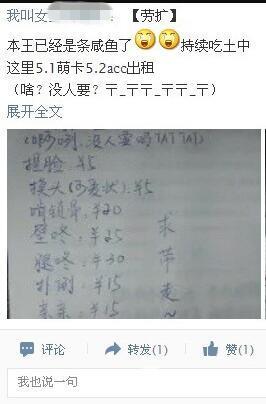 我叫女 【劳扩】
本王已经是条咸鱼了 持续吃土中
这里5.1萌卡5.2acc出租
(啥?没人要?〒_〒〒_〒〒_〒)
展开全文
没人要吗TAT TAT)
捏脸:¥5
摸头(可爱状):¥5
啃锁骨:¥20
壁咚:¥25
腿咚:¥30
扑倒:¥15
亲亲:¥15
求
带
走
~
评论 转发(1) 赞(1)
我也说一句